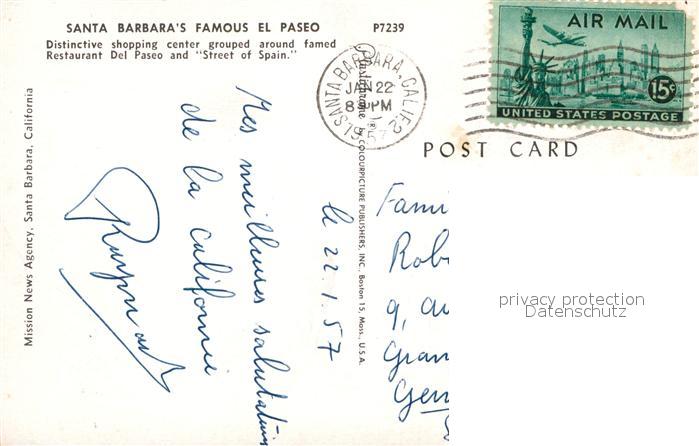 SANTA BARBARA'S FAMOUS EL PASEO P7239
Distinctive shopping center grouped around famed
Restaurant Del Paseo and "Street of Spain."
Mission News Agency, Santa Barbara, California
Plastichrome (R) by COLOURPICTURE PUBLISHERS, INC., Boston 15, Mass., U.S.A.
SANTA BARBARA, CALIF. 2
JAN 22
8 PM
1957
AIR MAIL
15¢
UNITED STATES POSTAGE
POST CARD
le 22.1.57
Mes meilleures salutations
de la californie
Raymond
Fam
Rob
9, av
Gran
Gen
privacy protection
Datenschutz